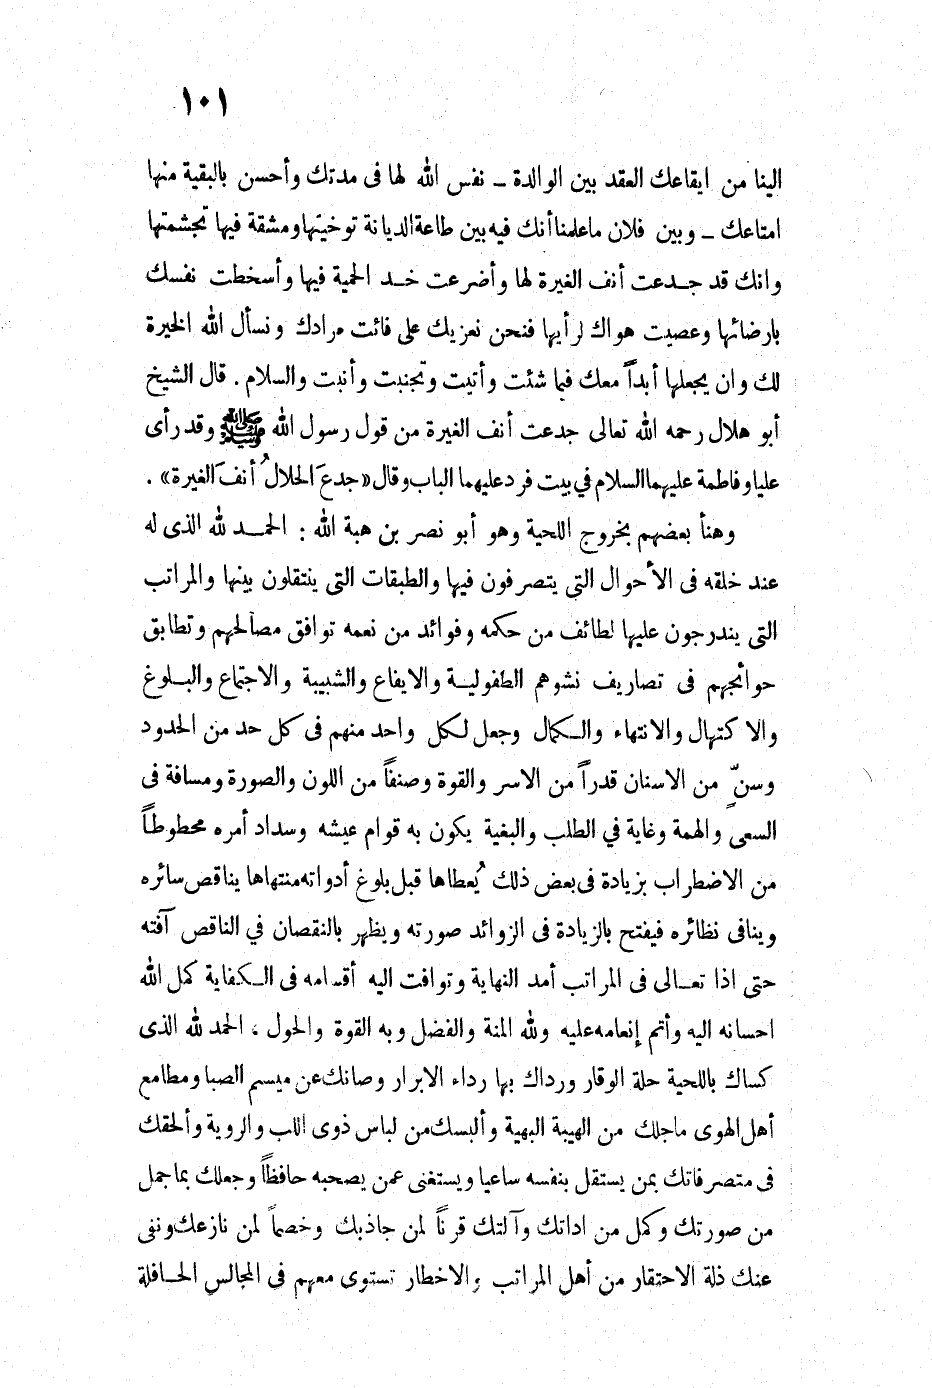 ١٠١
الينا من ايقاعك العقد بين الوالدة ــ نفس الله لها فى مدتك وأحسن بالبقية منها
امتاعك ــ وبين فلان ماعلمنا أنك فيه بين طاعة الديانة توخيتها ومشقة فيها تجشمتها
وانك قد جـدعت أنف الغيرة لها وأضرعت خـد الحمية فيها وأسخطت نفسك
بارضائها وعصيت هواك لرأيها فنحن نعزيك على فائت مرادك ونسأل الله الخيرة
لك وان يجعلها أبداً معك فيما شئت وأتيت وتجنبت وأنبت والسلام . قال الشيخ
أبو هلال رحمه الله تعالى جدعت أنف الغيرة من قول رسول الله ﷺ وقد رأى
عليا وفاطمة عليهما السلام في بيت فرد عليهما الباب وقال «جدعَ الحلالُ أنفَ الغيرة» .
وهنأ بعضهم بخروج اللحية وهو أبو نصر بن هبة الله : الحمـد لله الذى له
عند خلقه فى الأحوال التي يتصرفون فيها والطبقات التى ينتقلون بينها والمراتب
التى يندرجون عليها لطائف من حكمه وفوائد من نعمه توافق مصالحهم وتطابق
حوائجهم فى تصاريف نشوهم الطفوليـة والايفاع والشبيبة والاجتماع والبـلوغ
والاكتهال والانتهاء والـكمال وجعل لكل واحد منهم فى كل حد من الحدود
وسنّ من الاسنان قدراً من الاسر والقوة وصنفاً من اللون والصورة ومسافة فى
السعى والهمة وغاية في الطلب والبغية يكون به قوام عيشه وسداد أمره محطوطاً
من الاضطراب بزيادة فى بعض ذلك يُعطاها قبل بلوغ أدواته منتهاها يناقص سائره
وينافى نظائره فيفتح بالزيادة فى الزوائد صورته ويظهر بالنقصان في الناقص آفته
حتى اذا تعـالى فى المراتب أمد النهاية وتوافت اليه أقسامه فى الـكفاية كمل الله
احسانه اليه وأتم إنعامه عليه ولله المنة والفضل وبه القوة والحول ، الحمد لله الذى
كساك باللحية حلة الوقار ورداك بها رداء الابرار وصانك عن ميسم الصبا ومطامع
أهل الهوى ماجلك من الهيبة البهية وألبسك من لباس ذوى اللب والروية وألحقك
فى متصرفاتك بمن يستقل بنفسه ساعيا ويستغنى عمن يصحبه حافظاً وجعلك بما جمل
من صورتك وكمل من اداتك وآلتك قرناً لمن جاذبك وخصماً لمن نازعك ونفى
عنك ذلة الاحتقار من أهل المراتب والاخطار تستوى معهم فى المجالس الحـافلة